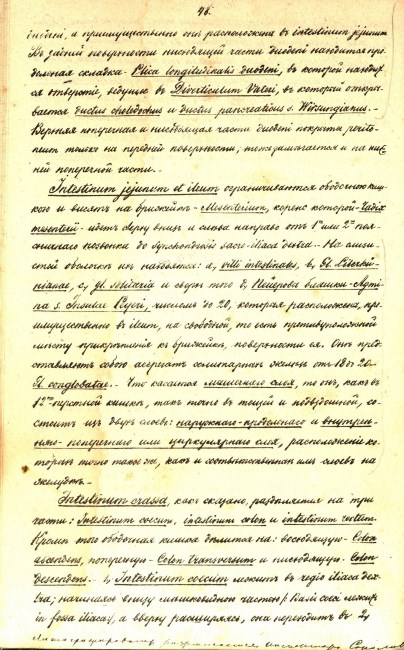 46.
lnieni, и преимущественно они расположены въ intestinum jejunum
Въ задней поверхности нисходящей части duodeni находится про-
дольная складка - Plica longitudinalis duodeni, въ которой находит-
ся отверстіе, ведущее въ Diverticulum Vateri, въ который откры-
вается ductus choledochus и ductus pancreaticus s. Wirsungianus. -
Верхняя поперечная и нисходящая части duodeni покрыта perito-
neum только на передней поверхности, тоже и на ниж-
ней поперечной части. -
Intestinum jejunum et ileum ограничиваются ободочною киш-
кою и висятъ на брыжейкѣ - Mesenterium, корень которой - Radix
mesenterii - идетъ сверху внизъ и слѣва направо отъ 1го или 2го поя-
сничнаго позвонка до Synchondrosis sacro-iliaca dextra. - На слизи-
стой оболочкѣ ихъ находятся: a, villi intestinales, b, Gl. Lieberküh-
nianae, c, gl. solitaria и сверхъ того d, Пейеровы бляшки - Agmi-
na s. Insulae Peyeri, числомъ до 20, которыя расположены, пре-
имущественно въ ileum, на свободной, то есть противуположной
мѣсту прикрѣпленія къ брыжейкѣ, поверхности ея. Онѣ пред-
ставляютъ собою агрегатъ солитарныхъ железъ отъ 18 до 20 -
Gl. conglobatae. - Что касается мышечнаго слоя, то онъ, какъ въ
12ти-перстной кишкѣ, такъ точно въ тощей и подвздошной, со-
стоитъ изъ двухъ слоевъ: наружнаго - продольнаго и внутрен-
няго - поперечнаго или циркулярнаго слоя, расположеніе ко-
торыхъ точно такое же, какъ и соотвѣтственныхъ имъ слоевъ на
желудкѣ. -
Intestinum crassa, какъ сказано, раздѣляется на три
части: Intestinum coecum, intestinum colon и intestinum rectum.
Кромѣ того ободочная кишка дѣлится на: восходящую - Colon
ascendens, поперечную - Colon transversum и нисходящую - Colon
descendens. - 1, Intestinum coecum лежитъ въ regio iliaca dex-
tra; начинаясь внизу мѣшковидною частью
in fossa iliaca, а вверху расширяясь, она переходитъ въ 2,
Литографировать разрѣшается